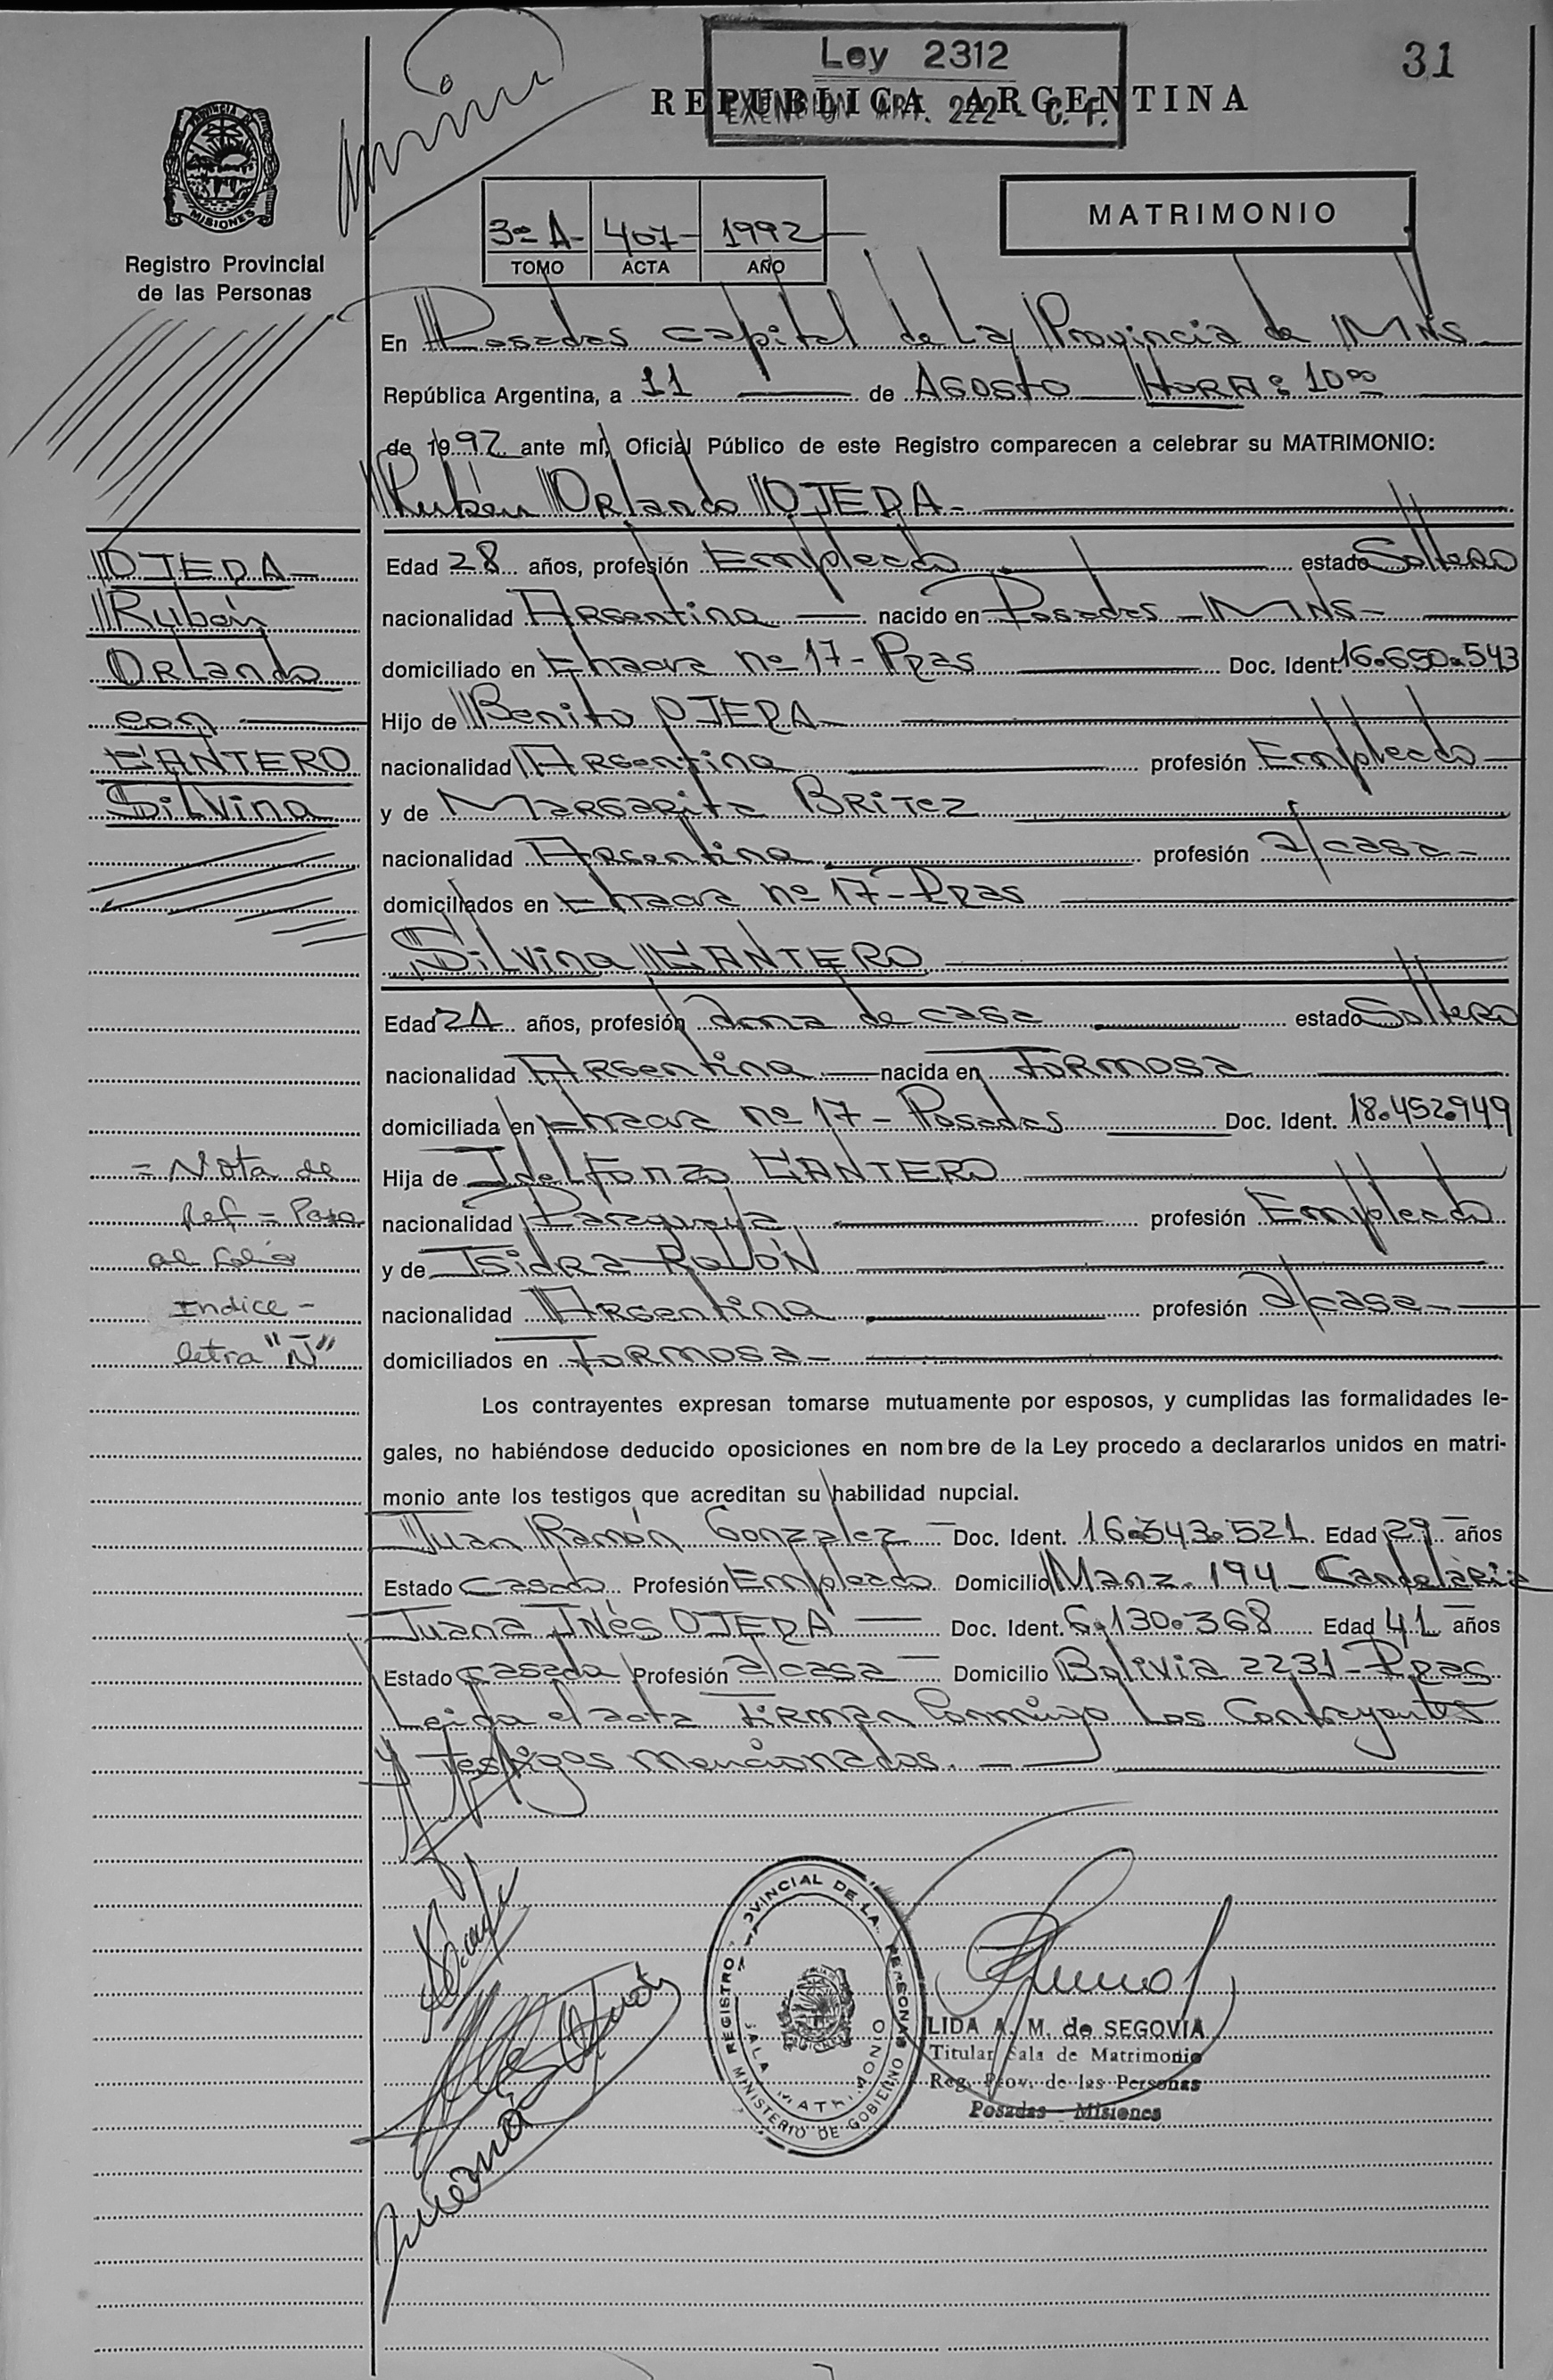 Ley 2312
EXENCION ART. 222 - C. F.
31
REPUBLICA ARGENTINA
PROVINCIA DE
MISIONES
Registro Provincial
de las Personas
3º A- 407- 1992
TOMO ACTA AÑO
MATRIMONIO
En Posadas capital de La Provincia de Mnes
República Argentina, a 11 de AGOSTO HORA: 10°°
de 1992 ante mí, Oficial Público de este Registro comparecen a celebrar su MATRIMONIO:
Rubén Orlando OJEDA-
OJEDA-
Rubén
Orlando
con
CANTERO
Silvina
Edad 28 años, profesión Empleado estado Soltero
nacionalidad Argentina nacido en Posadas - Mnes-
domiciliado en Chacra nº 17 - Pdas Doc. Ident. 16.650.543
Hijo de Benito OJEDA
nacionalidad Argentina profesión Empleado
y de Margarita Britez
nacionalidad Argentina profesión a/casa-
domiciliados en Chacra nº 17 - Pdas
Silvina CANTERO
Edad 24 años, profesión ama de casa estado Soltero
nacionalidad Argentina nacida en Formosa
domiciliada en Chacra nº 17 - Posadas Doc. Ident. 18.452.949
Hija de Idelfonzo CANTERO
nacionalidad Paraguaya profesión Empleado
y de Isidra Rolón
nacionalidad Argentina profesión a/casa-
domiciliados en Formosa-
= Nota de
Ref = Pasa
al folio
Indice -
letra "Ñ"
Los contrayentes expresan tomarse mutuamente por esposos, y cumplidas las formalidades le-
gales, no habiéndose deducido oposiciones en nombre de la Ley procedo a declararlos unidos en matri-
monio ante los testigos que acreditan su habilidad nupcial.
Juan Ramón Gonzalez Doc. Ident. 16.343.521 Edad 29 años
Estado Casado Profesión Empleado Domicilio Manz. 194 - Candelaria
Juana Inés OJEDA Doc. Ident. 6.130.368 Edad 41 años
Estado casada Profesión a/casa Domicilio Bolivia 2231 - Pdas
Leida el acta Firman Conmigo Los Contrayentes
y testigos mencionados.
REGISTRO PROVINCIAL DE LAS PERSONAS
MINISTERIO DE GOBIERNO
SALA MATRIMONIO
LIDA A. M. de SEGOVIA
Titular Sala de Matrimonio
Reg. Prov. de las Personas
Posadas - Misiones